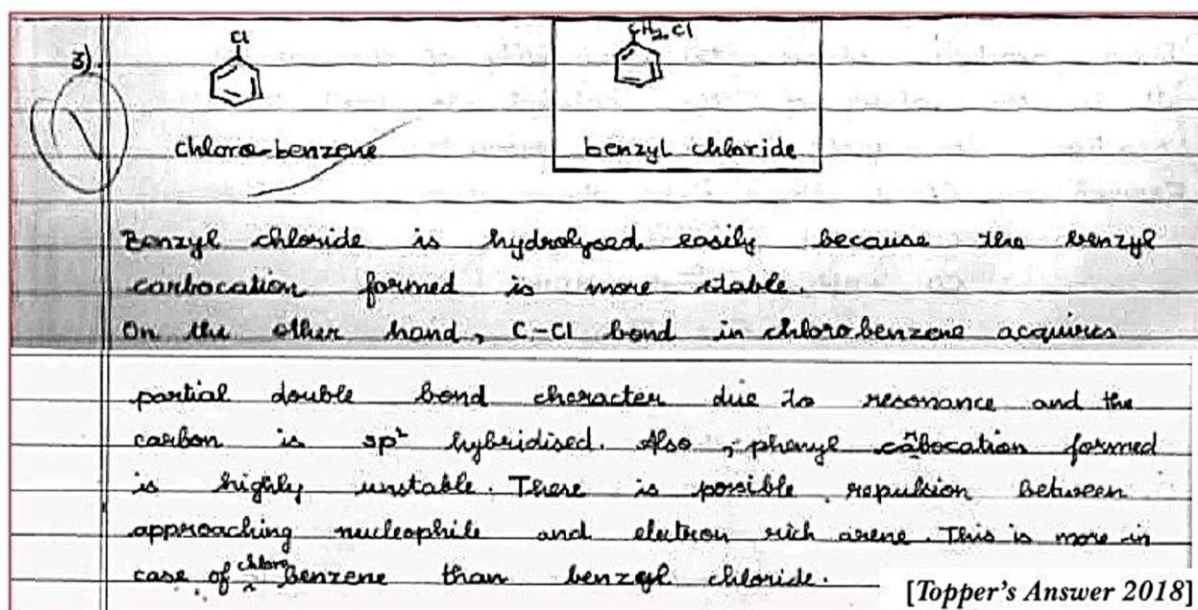 3).
Cl
CH₂Cl
chloro-benzene
benzyl chloride
Benzyl chloride is hydrolysed easily because the benzyl
carbocation formed is more stable.
On the other hand, C-Cl bond in chlorobenzene acquires
partial double bond character due to resonance and the
carbon is sp² hybridised. Also, phenyl cabocation formed
is highly unstable. There is possible repulsion between
approaching nucleophile and electron rich arene. This is more in
case of chloro benzene than benzyl chloride.
[Topper's Answer 2018]